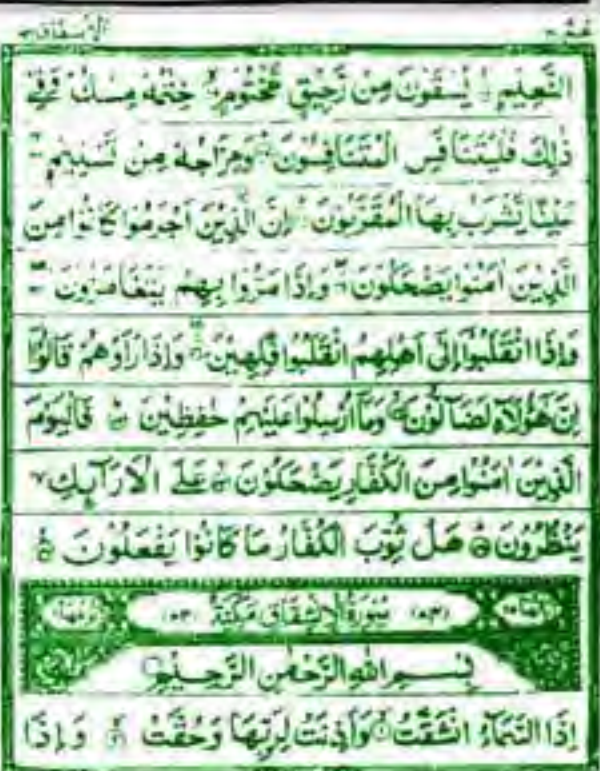 عم ٣٠
الانشقاق ٨٤
النَّعِيْمِ یُسْقَوْنَ مِنْ رَّحِیْقٍ مَّخْتُوْمٍ خِتٰمُهٗ مِسْكٌ وَفِیْ
ذٰلِكَ فَلْیَتَنَافَسِ الْمُتَنَافِسُوْنَ وَمِزَاجُهٗ مِنْ تَسْنِیْمٍ
عَیْنًا یَّشْرَبُ بِهَا الْمُقَرَّبُوْنَ اِنَّ الَّذِیْنَ اَجْرَمُوْا كَانُوْا مِنَ
الَّذِیْنَ اٰمَنُوْا یَضْحَكُوْنَ وَاِذَا مَرُّوْا بِهِمْ یَتَغَامَزُوْنَ
وَاِذَا انْقَلَبُوْۤا اِلٰۤی اَهْلِهِمُ انْقَلَبُوْا فَكِهِیْنَ وَاِذَا رَاَوْهُمْ قَالُوْۤا
اِنَّ هٰۤؤُلَآءِ لَضَآلُّوْنَ وَمَاۤ اُرْسِلُوْا عَلَیْهِمْ حٰفِظِیْنَ فَالْیَوْمَ
الَّذِیْنَ اٰمَنُوْا مِنَ الْكُفَّارِ یَضْحَكُوْنَ عَلَی الْاَرَآىِٕكِ
یَنْظُرُوْنَ هَلْ ثُوِّبَ الْكُفَّارُ مَا كَانُوْا یَفْعَلُوْنَ
سُوْرَةُ الْاِنْشِقَاقِ مَكِّیَّةٌ
بِسْمِ اللهِ الرَّحْمٰنِ الرَّحِیْمِ
اِذَا السَّمَآءُ انْشَقَّتْ وَاَذِنَتْ لِرَبِّهَا وَحُقَّتْ وَاِذَا